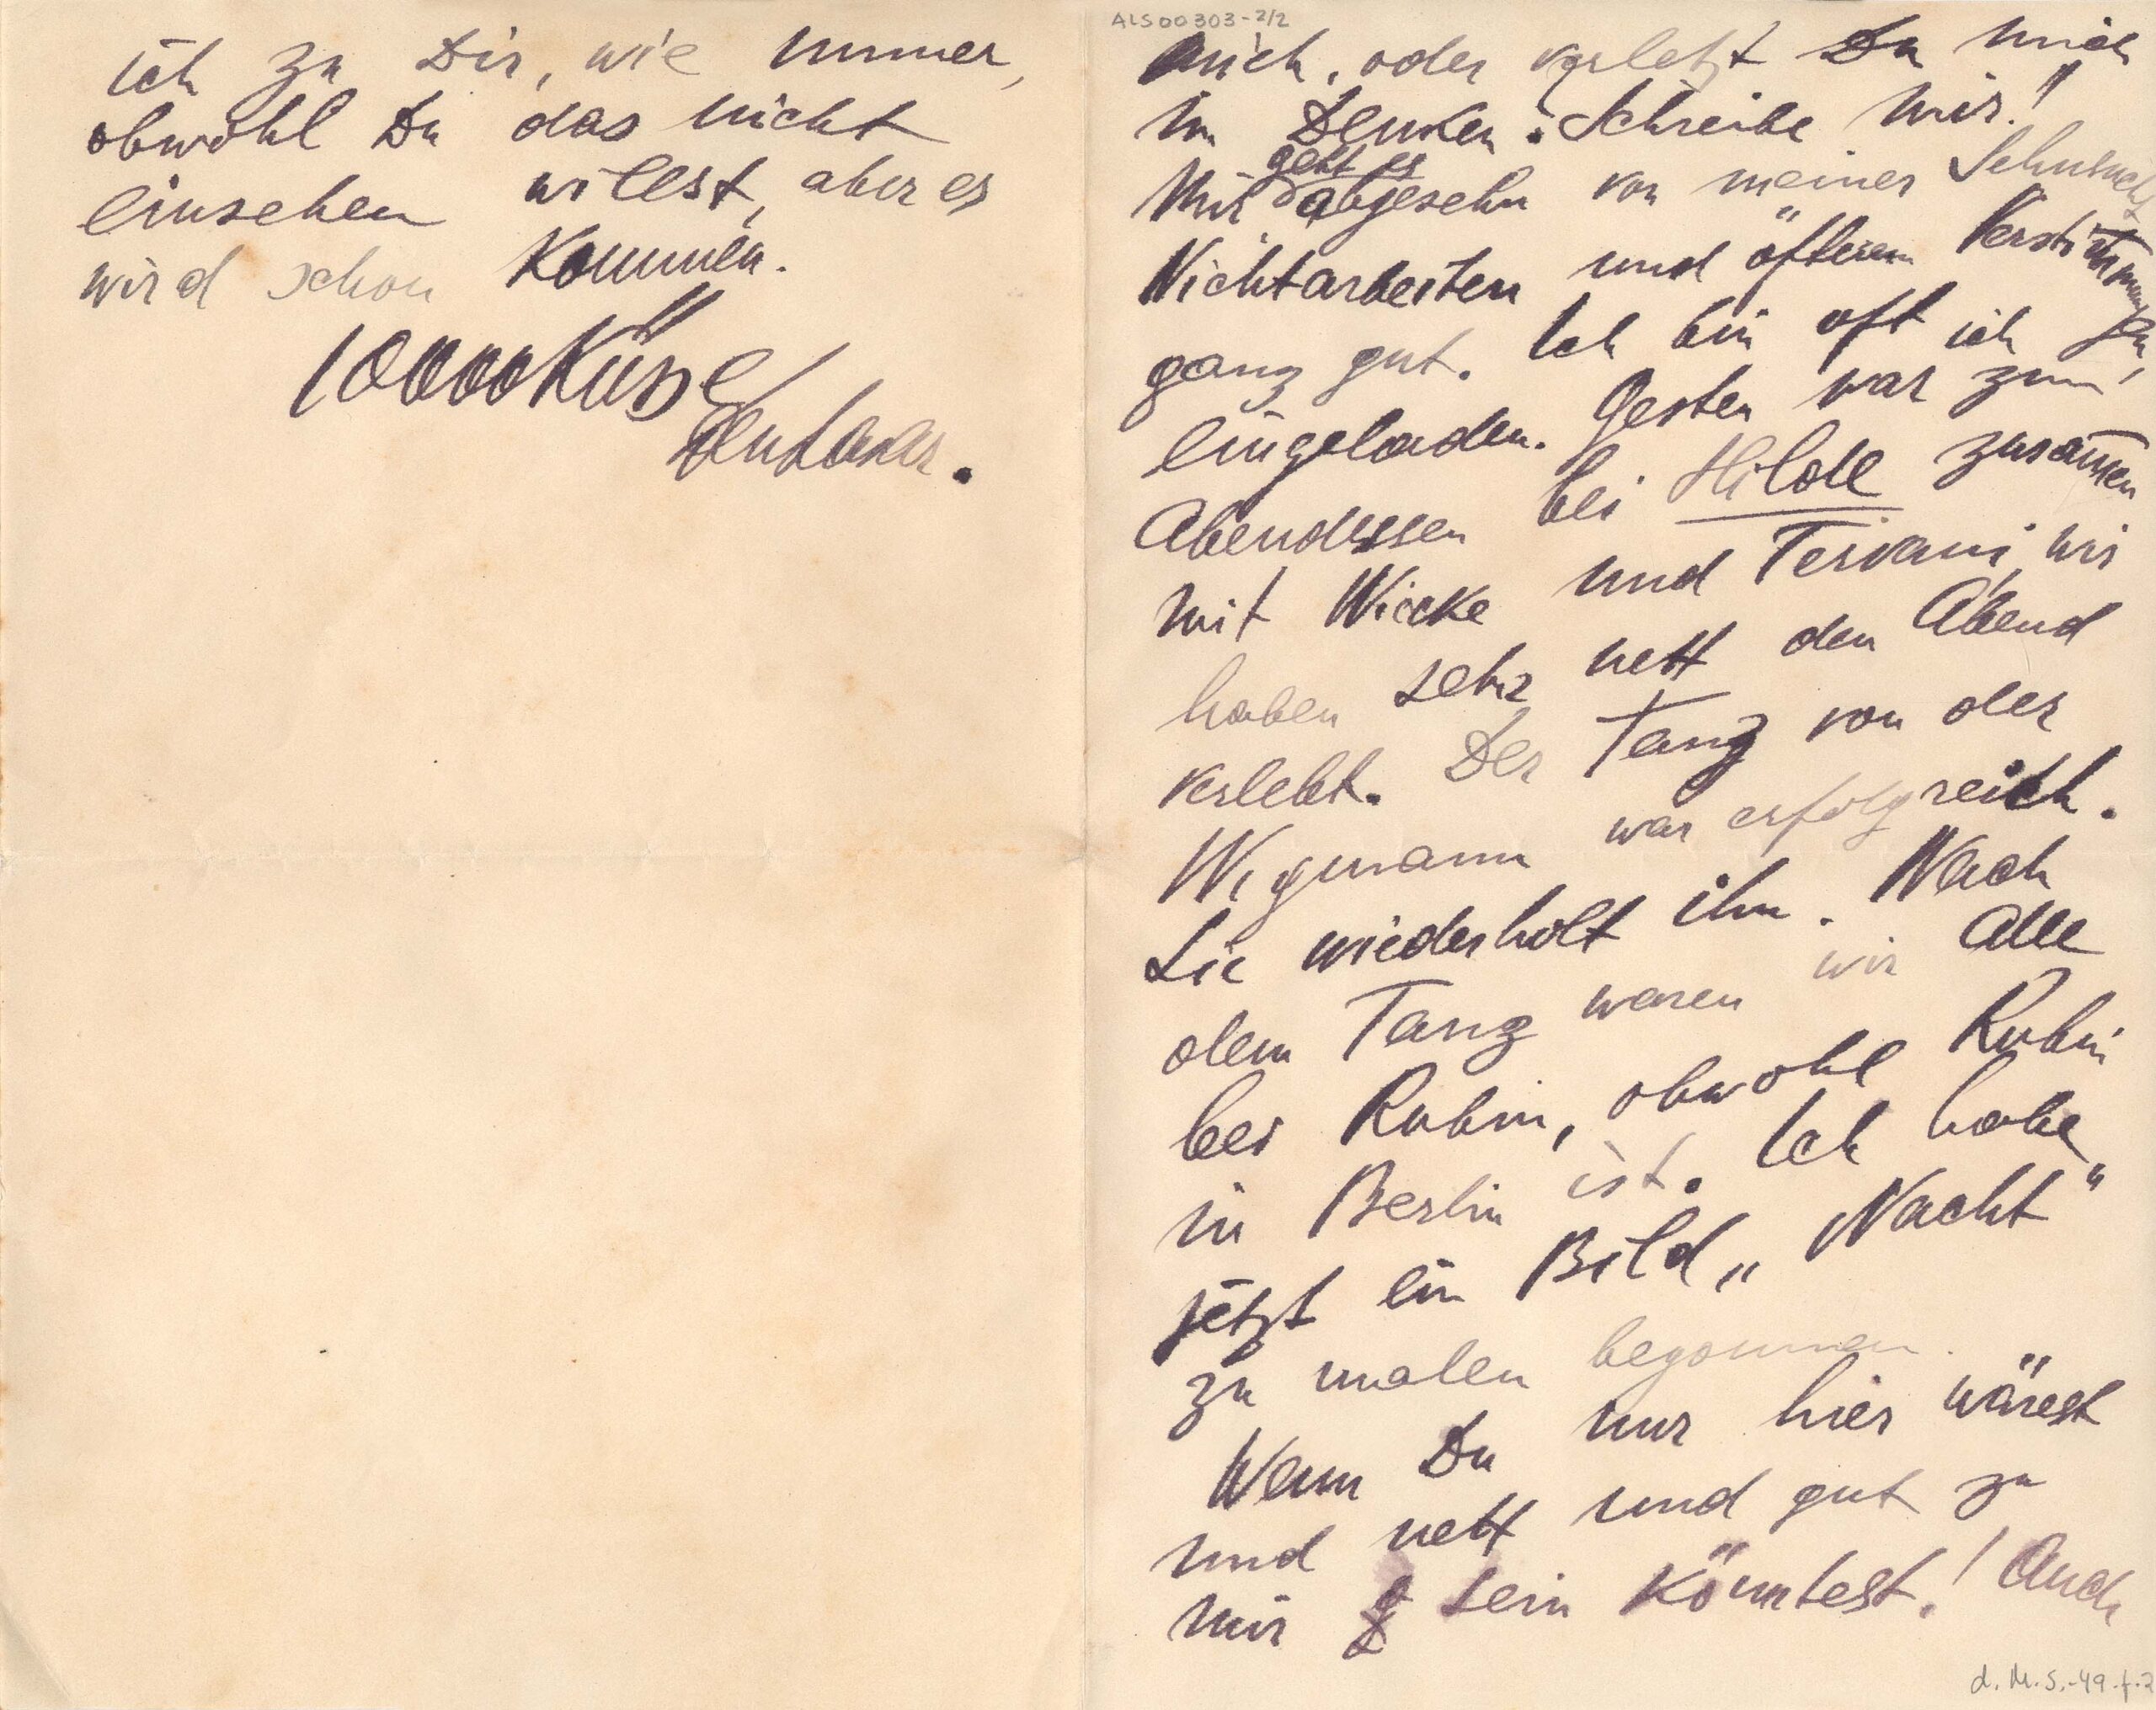 ALS00303-2/2
mich, oder verletzt Du mich
im Denken. Schreibe mir!!
geht es
Mir abgesehn von meiner Sehnsucht
Nichtarbeiten und öfteren Verstimmungen,
ganz gut. Ich bin oft ich
eingeladen. Gesten war zum
Abendessen bei Hilde zusamen
mit Wiecke und Tervani, wir
haben sehr nett den Abend
verlebt. Der Tanz von der
Wigmann war erfolgreich.
Sie wiederholt ihn. Nach
dem Tanz waren wir Alle
bei Rubin, obwohl Rubin
in Berlin ist. Ich habe
jetzt ein Bild „Nacht"
zu malen begonnen.
Wenn Du nur hier wärest
und nett und gut zu
mir sein könntest! Auch
d. M. S.-49-f-2
ich zu Dir, wie immer,
obwohl Du das nicht
einsehen willst, aber es
wird schon kommen.
10000 Küsse